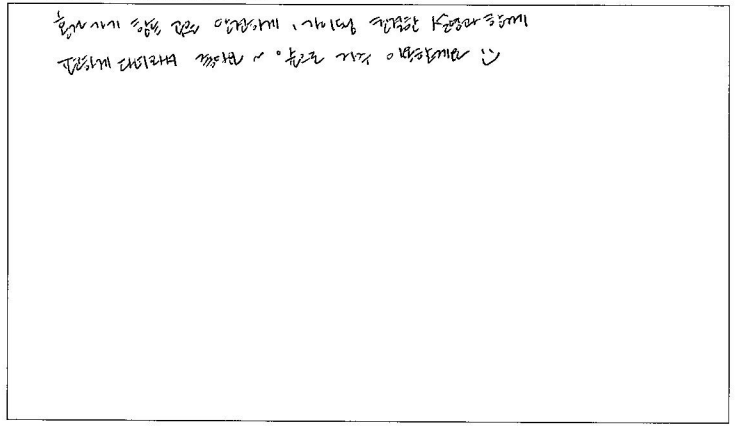 혼자 가기 힘든 곳을 안전하게, 가이드님 친절한 설명과 함께
편하게 다녀와서 좋아요 ~ 앞으로 자주 이용할게요 :)